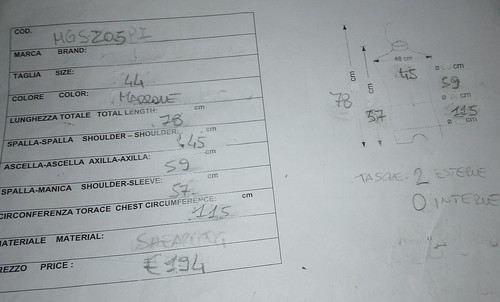 COD. MGSZ05PI
MARCA BRAND:
TAGLIA SIZE: 44
COLORE COLOR: MARRONE
LUNGHEZZA TOTALE TOTAL LENGTH: 78 cm
SPALLA-SPALLA SHOULDER – SHOULDER: 45 cm
ASCELLA-ASCELLA AXILLA-AXILLA: 59 cm
SPALLA-MANICA SHOULDER-SLEEVE: 57 cm
CIRCONFERENZA TORACE CHEST CIRCUMFERENCE: 115 cm
MATERIALE MATERIAL:
REZZO PRICE : € 194
cm
45 cm
59
cm
78
57
115
cm
TASCHE: 2 ESTERNE
0 INTERNE